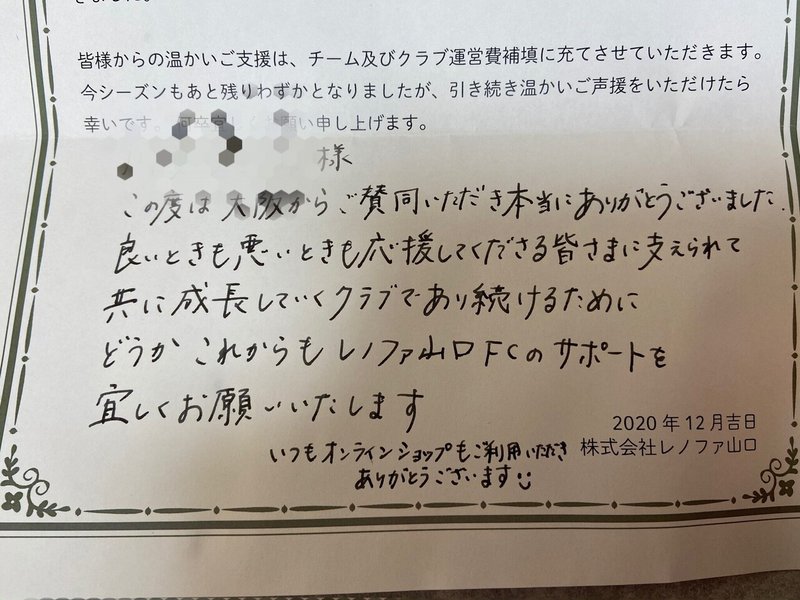 皆様からの温かいご支援は、チーム及びクラブ運営費補填に充てさせていただきます。
今シーズンもあと残りわずかとなりましたが、引き続き温かいご声援をいただけたら
幸いです。何卒宜しくお願い申し上げます。
様
この度は大阪からご賛同いただき本当にありがとうございました.
良いときも悪いときも応援してくださる皆さまに支えられて
共に成長していくクラブであり続けるために
どうかこれからもレノファ山口FCのサポートを
宜しくお願いいたします
2020年12月吉日
株式会社レノファ山口
いつもオンラインショップもご利用いただき
ありがとうございます